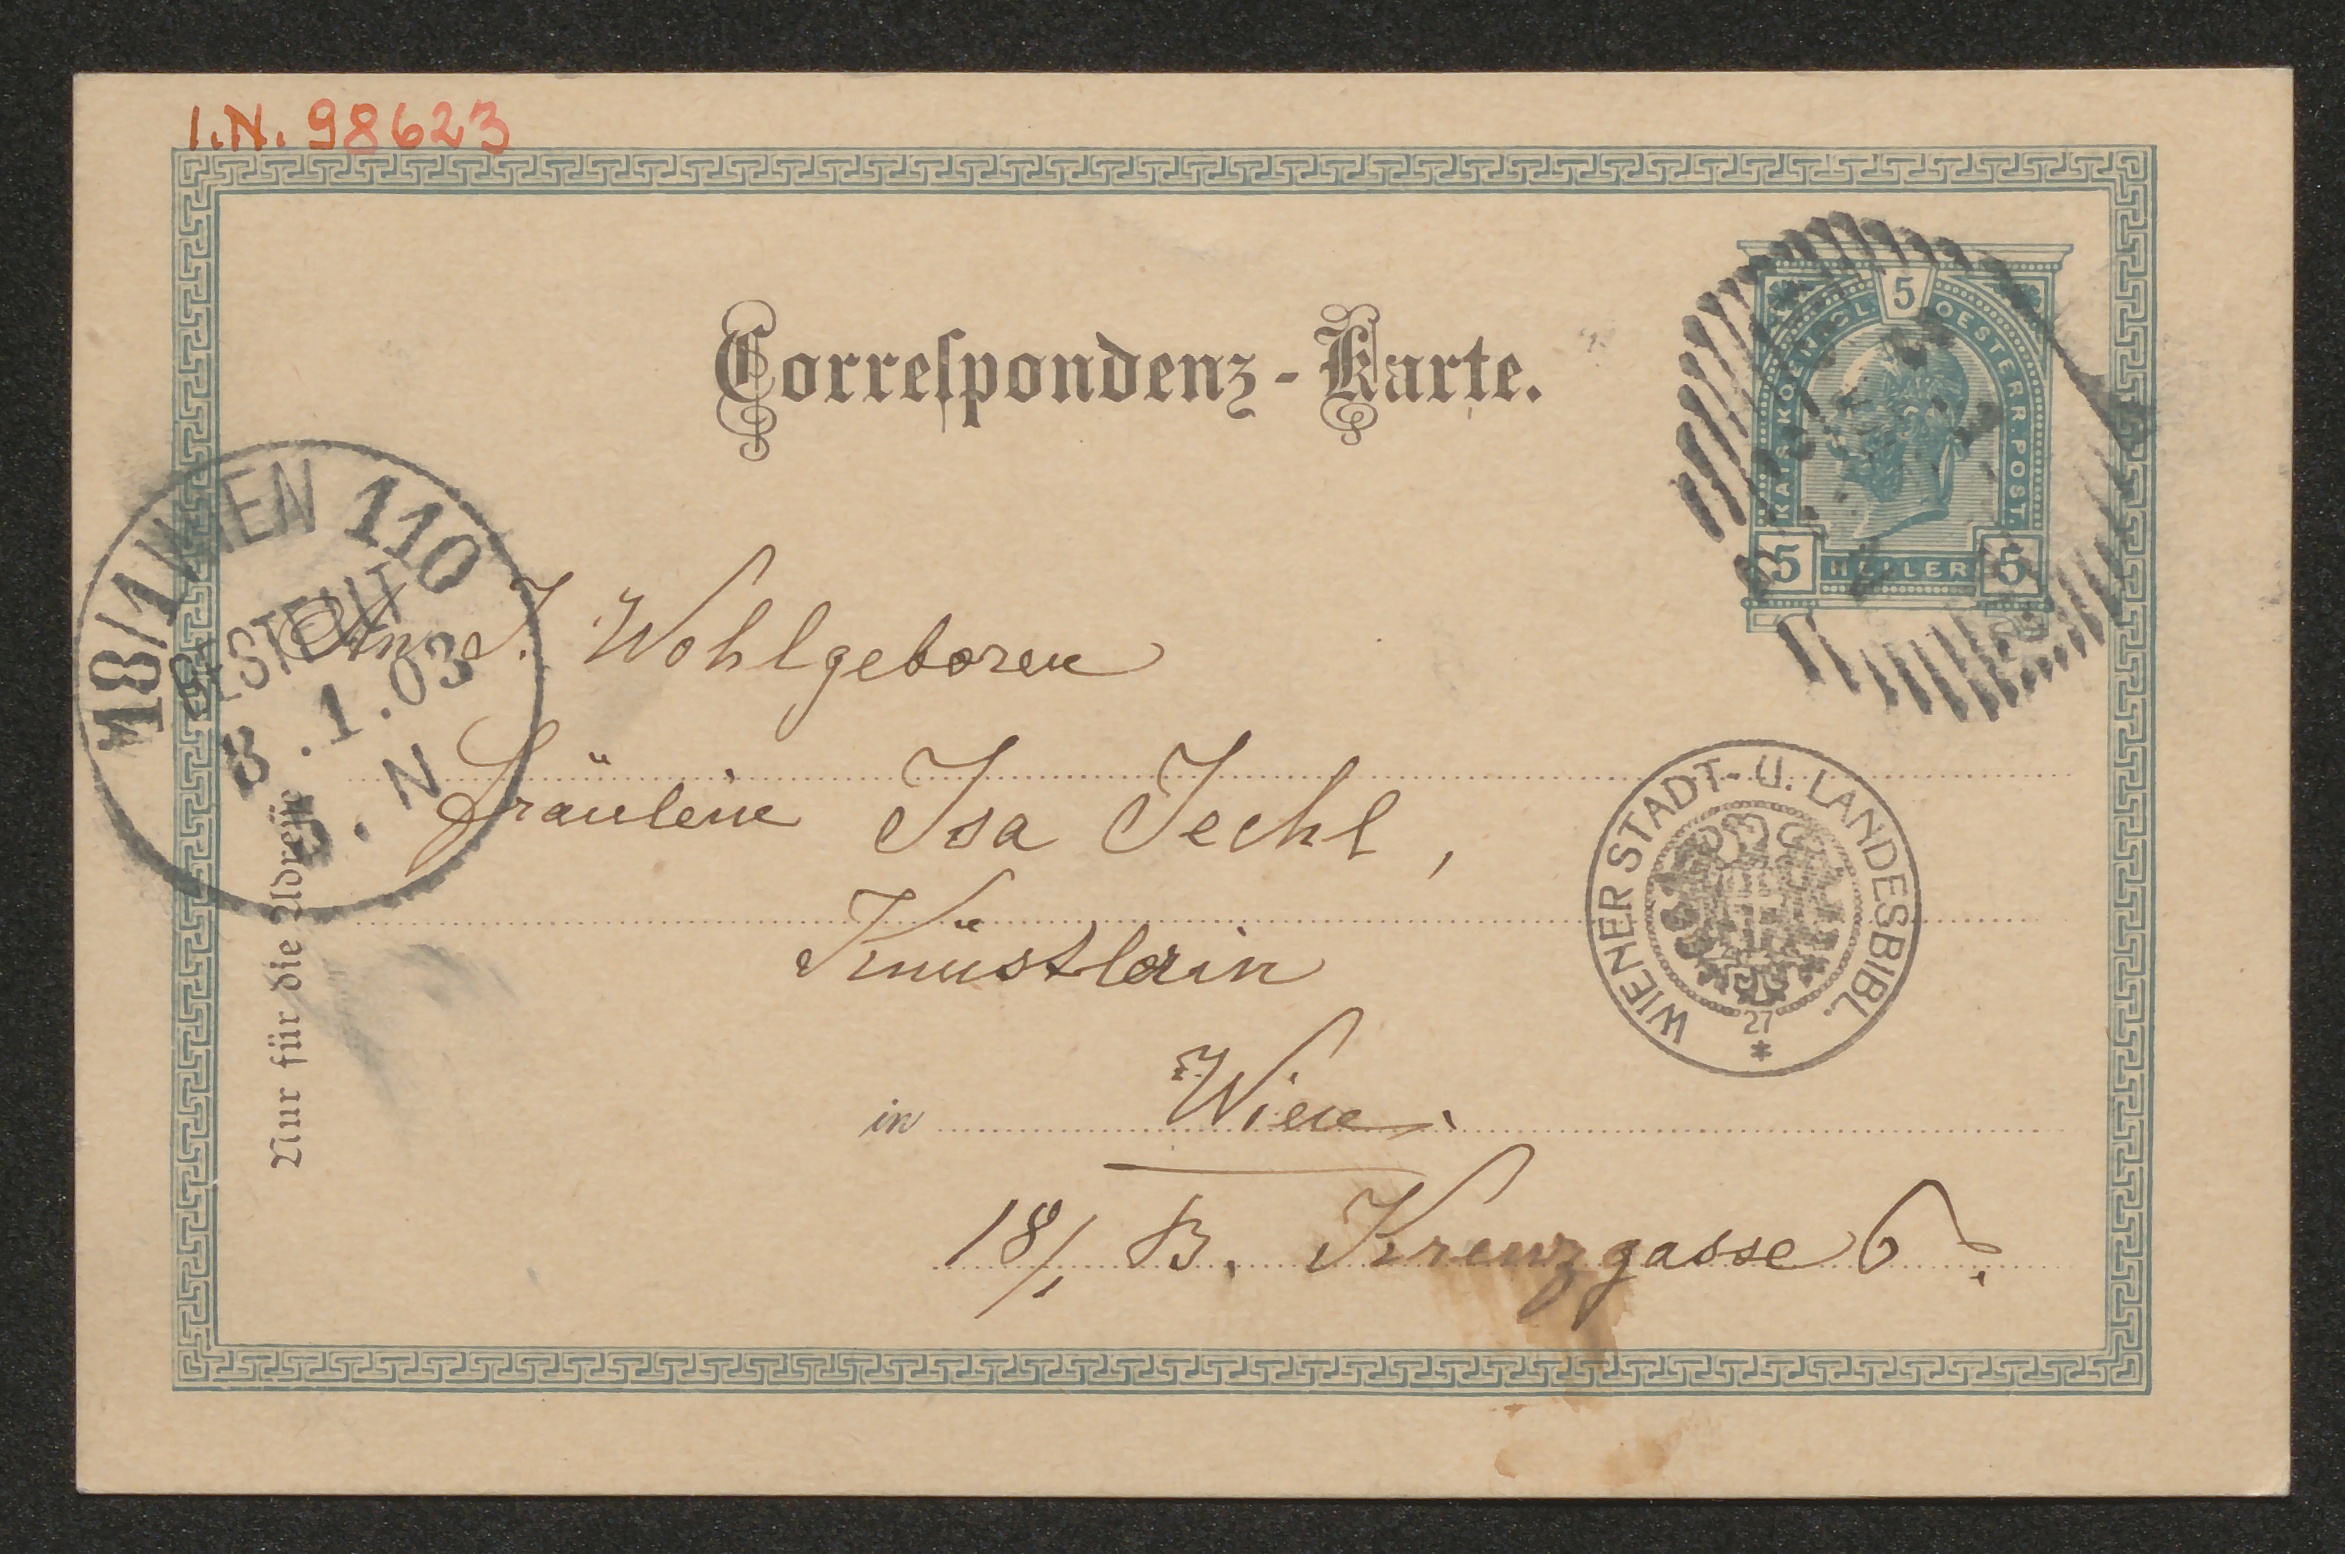 I.N. 98623
Correspondenz-Karte.
KAIS. KOENIGL. OESTERR. POST.
5
5 HELLER 5
18/1 WIEN 110
BESTELLT
8.1.03
N
An I. Wohlgeboren
Fräulein Isa Jechl,
Künstlerin
in Wien.
18/1 B. Kreuzgasse 6.
Nur für die Adresse
WIENER STADT- U. LANDESBIBL.
27